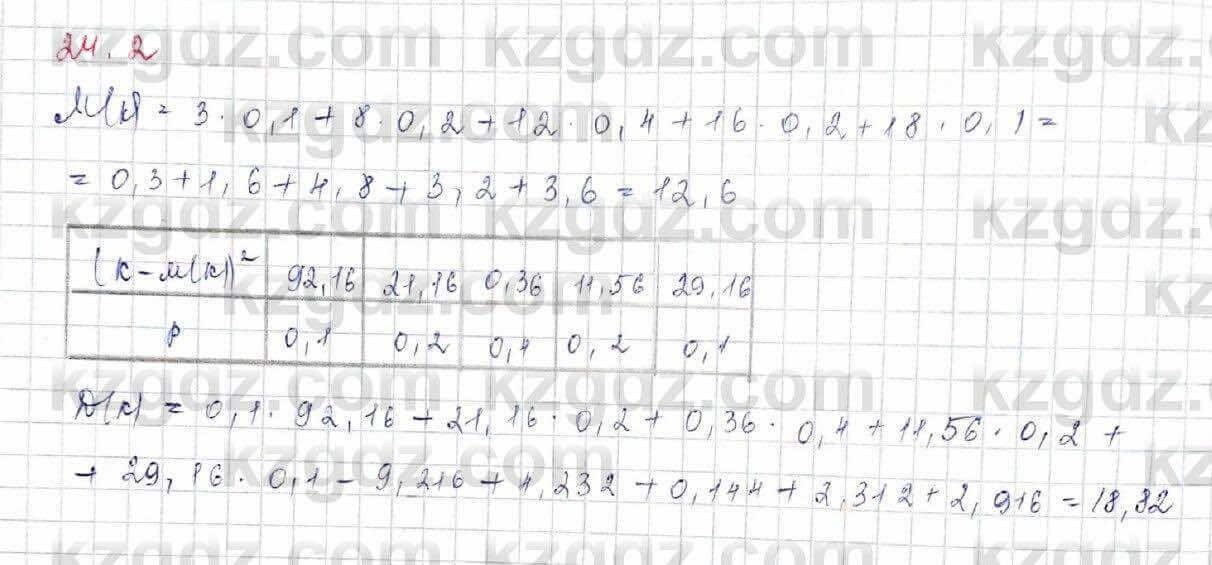 24.2
M(k) = 3 · 0,1 + 8 · 0,2 + 12 · 0,4 + 16 · 0,2 + 18 · 0,1 =
= 0,3 + 1,6 + 4,8 + 3,2 + 3,6 = 12,6
(k - M(k))² 92,16 21,16 0,36 11,56 29,16
P 0,1 0,2 0,4 0,2 0,1
D(k) = 0,1 · 92,16 + 21,16 · 0,2 + 0,36 · 0,4 + 11,56 · 0,2 +
+ 29,16 · 0,1 = 9,216 + 4,232 + 0,144 + 2,312 + 2,916 = 18,82
kzgdz.com